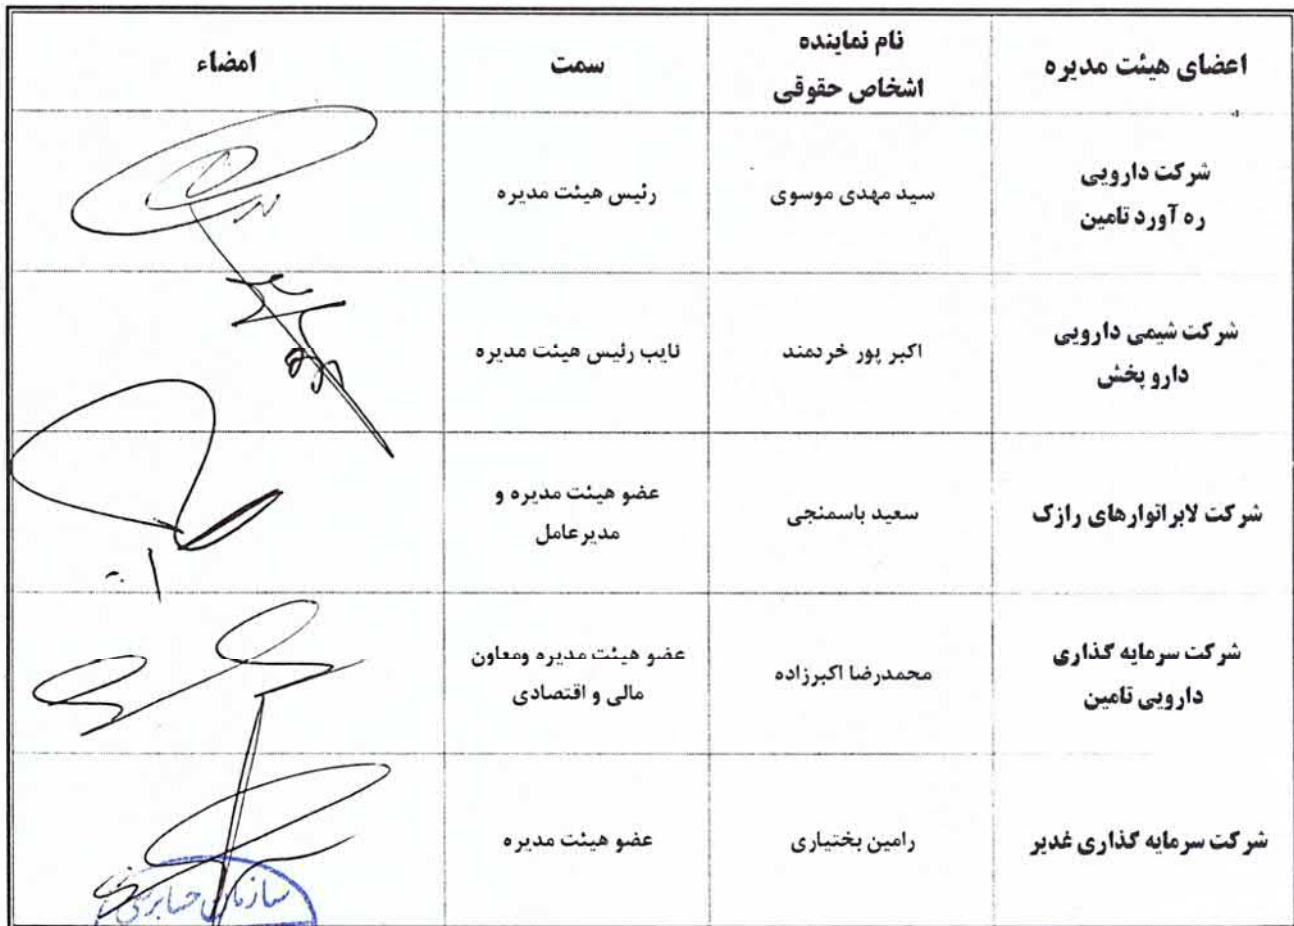 اعضای هیئت مدیره
نام نماینده
اشخاص حقوقی
سمت
امضاء
شرکت دارویی
ره آورد تامین
سید مهدی موسوی
رئیس هیئت مدیره
شرکت شیمی دارویی
دارو پخش
اکبر پور خردمند
نایب رئیس هیئت مدیره
شرکت لابراتوارهای رازک
سعید باسمنجی
عضو هیئت مدیره و
مدیرعامل
شرکت سرمایه گذاری
دارویی تامین
محمدرضا اکبرزاده
عضو هیئت مدیره ومعاون
مالی و اقتصادی
شرکت سرمایه گذاری غدیر
رامین بختیاری
عضو هیئت مدیره
سازمان حسابرسی